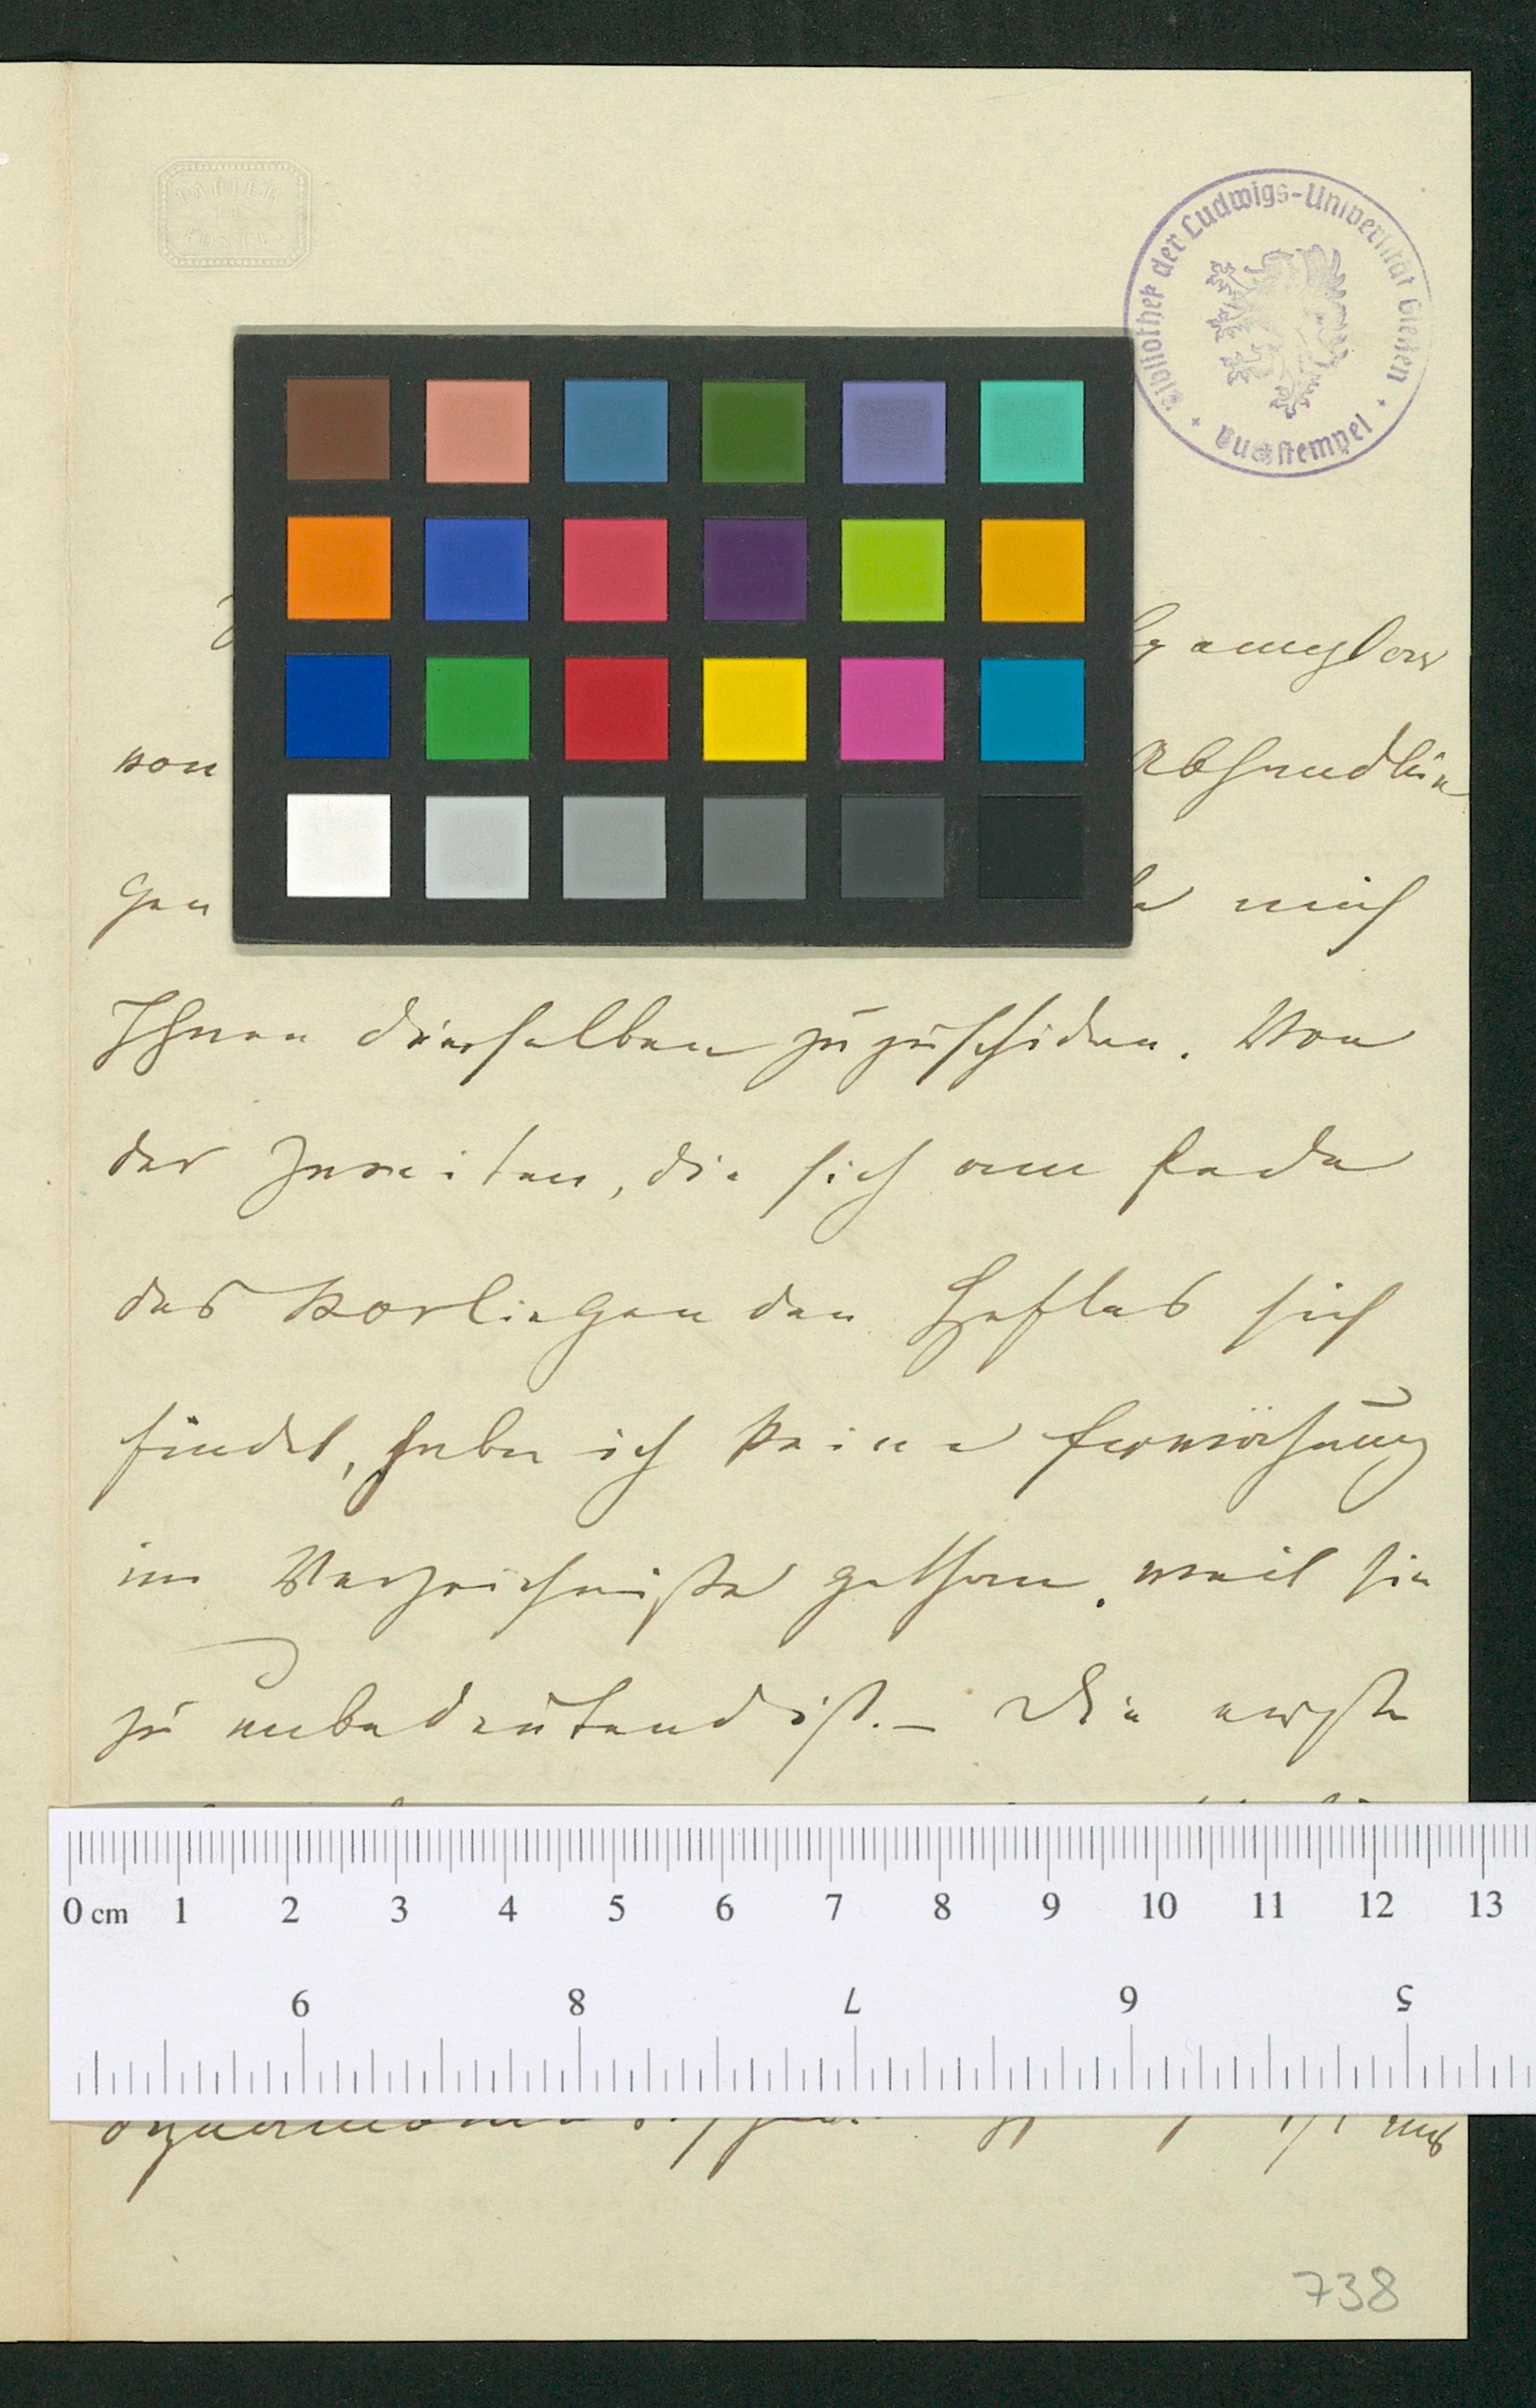 Bibliothek der Ludwigs-Universität Gießen
Buchstempel
von Abhandlun
gen mich
Ihnen dieselben zuzuschicken. Von
der Zweiten, die sich am Ende
des vorliegenden Heftes sich
findet, habe ich keine Erwähnung
im Verzeichniße gethan, weil sie
zu unbedeutend ist. – Die erste
0 cm 1 2 3 4 5 6 7 8 9 10 11 12 13
9 8 7 6 5
738